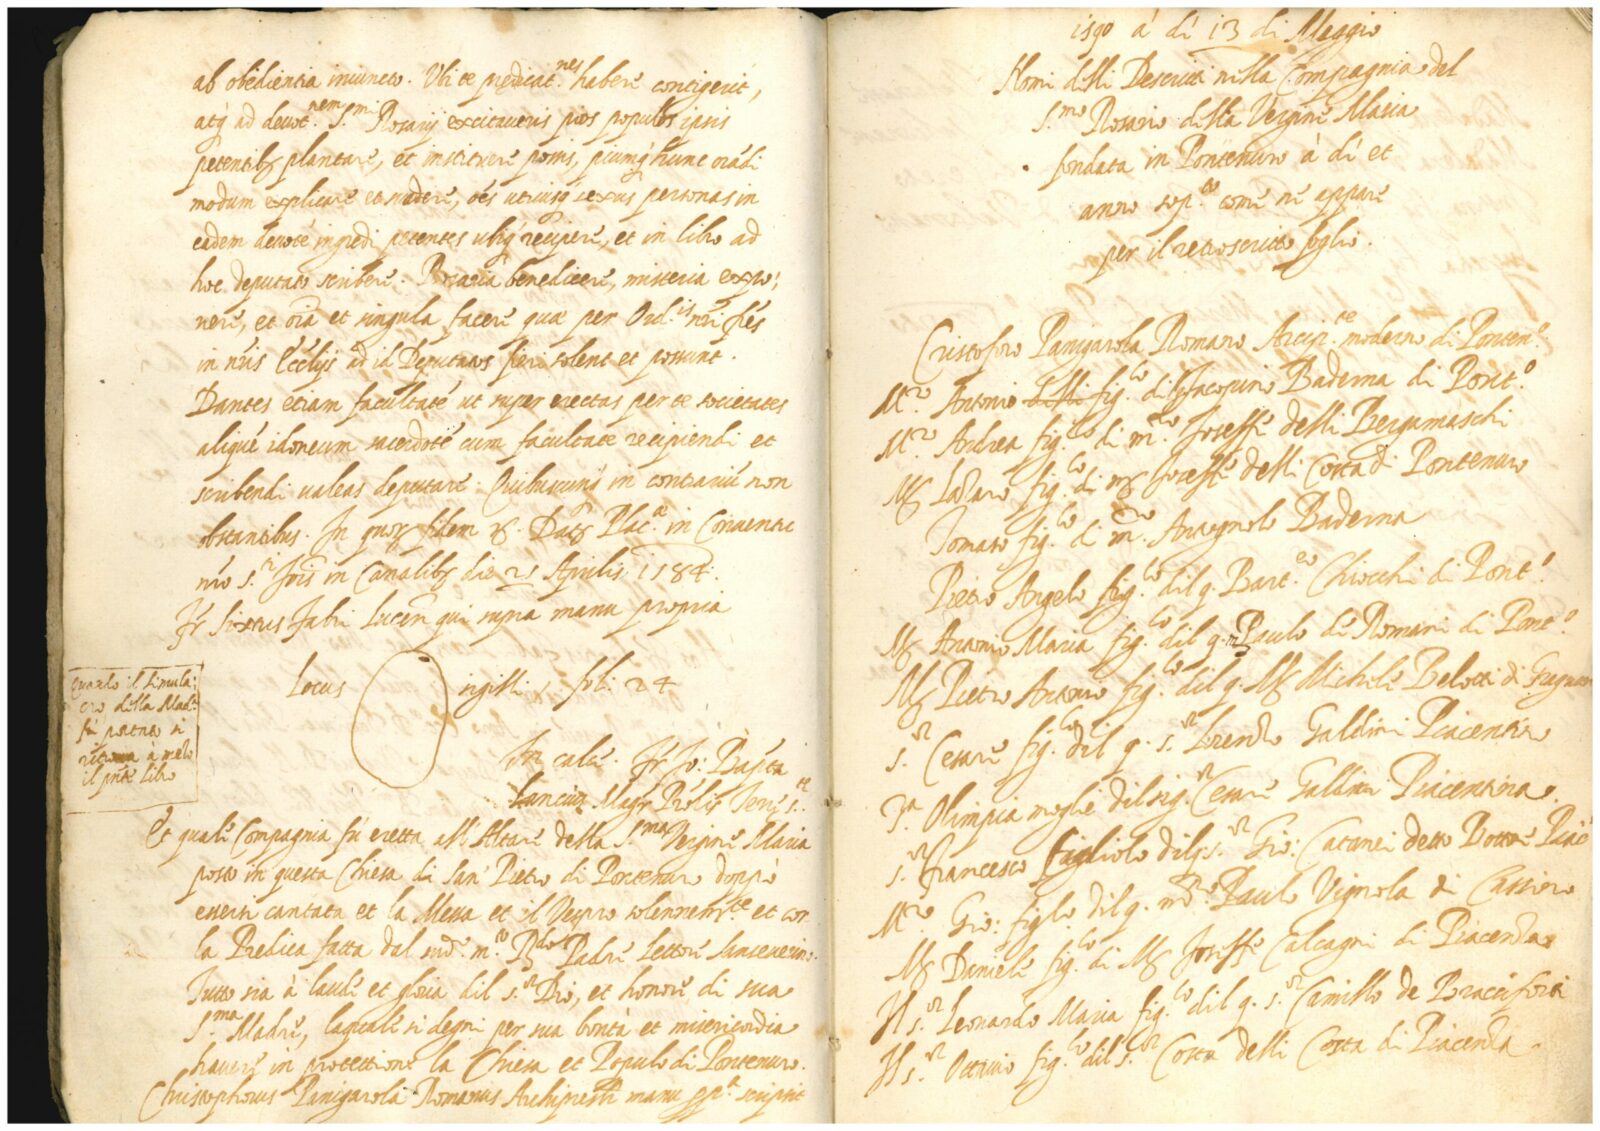 ab obedientia iniuncto. Ubi te predicat.nes habere contigerit,
atq ad devot.nem S.mi Rosarij excitaveris pios populos ipsis
petentib plantare, et instituere possis, piumq hunc orādi
modum explicare et suadere, oēs utriusq sexus personas in
eadem devote ingredi petentes ubiq recipere, et in libro ad
hoc deputato scribere. Rosaria benedicere, misteria expo,
nere, et oīa et singula facere quae per Ord.is nr̄i fr̄es
in nr̄is Ecclijs ad id Deputatos fieri solent et possunt.
Dantes etiam facultatē ut super erectas per te societates
aliquē idoneum sacerdotē cum facultate recipiendi et
scribendi valeas deputare. Quibuscunq in contrariū non
obstantibus. In quor fidem &. Dat Plac.ae in Conventu
nr̄o S.ti Jo͞is in Canalib die 21 Aprilis 1584.
Fr Sixtus Fabri Lucen qui supra manu propria
Locus sigilli, fol: 24
quando il simula,
cro della Mad.
fu portato si
ritrova à melo
il pn̄te libro
In calce. Fr Jo: Bap̄ta
Et quale Compagnia fù eretta all'Altare della S.ma Vergine Maria
posto in questa Chiesa di San Pietro di Pontenuro doppò
essersi cantata et la Messa et il Vespro solennem.te et con
la Predica fatta dal md.o m.to R.do Padre Lettore Sanseverino.
Tutto sia à laude et gloria del s.or Dio, et honore di sua
S.ma Madre, laquale si degni per sua bontà et misericordia
havere in protettione la Chiesa et Populo di Pontenuro.
Christophorus Panigarola Romanus Archipresb manu pp.a scripsit
1590 à dì 13 di Maggio
Nomi delli Descritti nella Compagnia del
S.mo Rosario della Vergine Maria
fondata in Pontenuro à dì et
anno sop.to come ne appare
per il retroscritto foglio.
Cristoforo Panigarola Romano Arcip.te moderno di Ponten.o
M.ro Antonio fig.lo di Jacopino Baderna di Pont.o
M.ro Andrea fig.lo di m.ro Joseffe delli Bergamaschi
M Lazaro fig.lo di m Joseffe delli Costa di Pontenuro
Tomaso fig.lo di m.ro Antognolo Baderna
Pietro Angelo fig.lo del q. Bart.eo Chiocchi di Pont.o
M Antonio Maria fig.lo del q. m Paulo de Romani di Pont.o
M Pietro Antonio fig.lo del q. M Michele Belotti di
s.or Cesare fig.lo del q. s.or Lorenzo Galdini Piacentino
s.ra Olimpia moglie del sig.or Cesare Galdini Piacentina.
s.or Francesco figliolo del q. s.or Gio: Catanei detto Bottore Piac
M.ro Gio: fig.lo del q. m.ro Paulo Vignola di Cassino
M Daniele fig.lo di M Joseffe Calcagni di Piacenza
Il s.or Leonardo Maria fig.lo del q. s.or Camillo de Bracciforti
Il s.or Ottavio fig.lo del s.or Costa delli Costa di Piacenza.